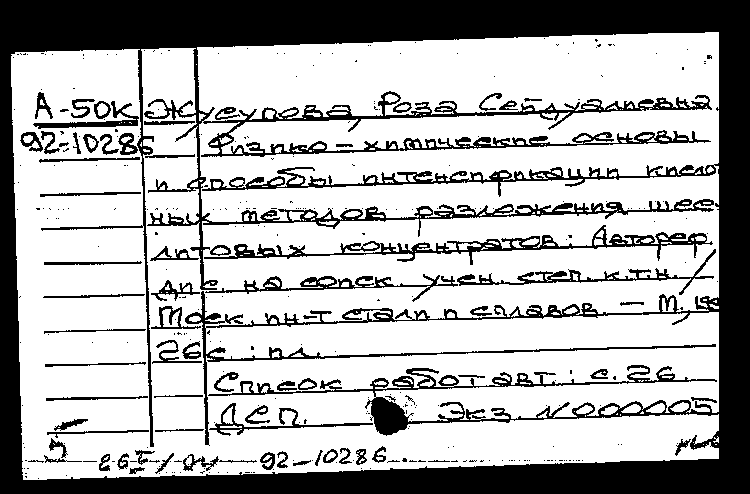 А-50к Жусупова, Роза Сейдуалиевна.
92-10286 Физико-химические основы
и способы интенсификации кислот
ных методов разложения шее-
литовых концентратов: Автореф.
дис. на соиск. учен. степ. к.т.н.
Моск. ин-т стали и сплавов. — М.,
26 с.: ил.
Список работ авт.: с. 26.
ДСП. Экз. N 000005
92-10286.